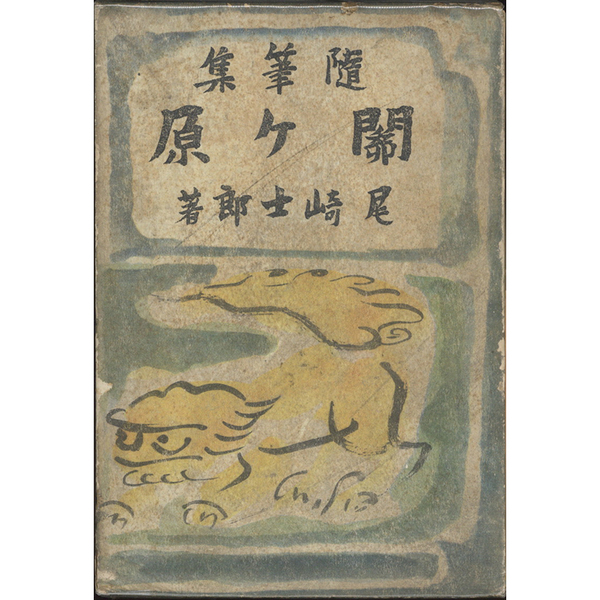 隨筆集
關ケ原
尾崎士郎著